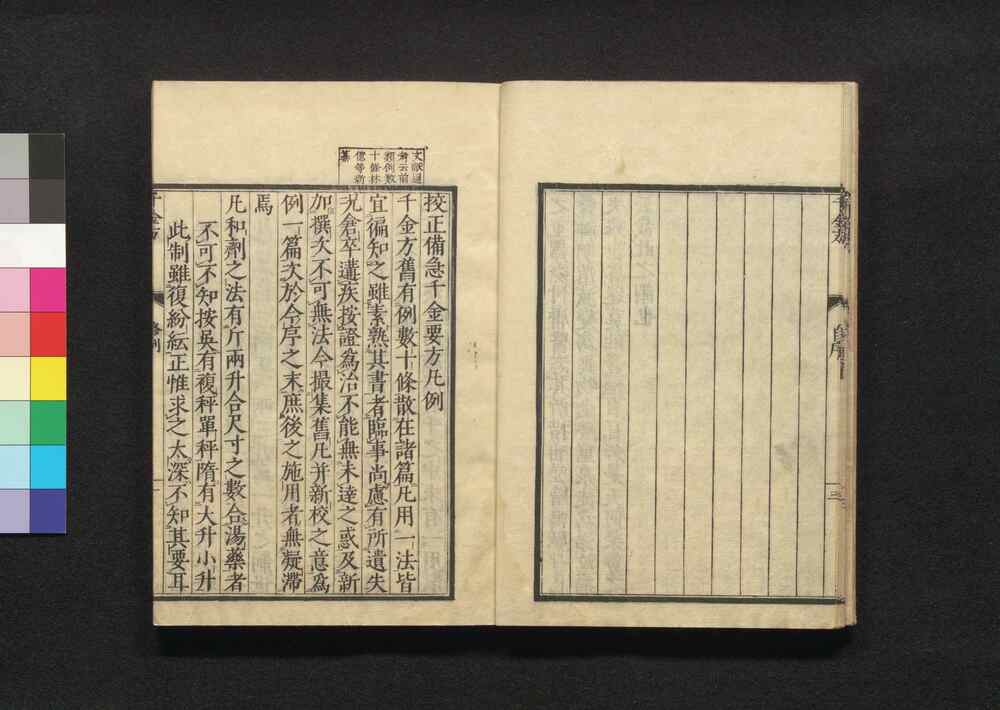 文献通
考云前
類例数
十條林
億等新
纂
校正備急千金要方凡例
千金方舊有例數十條散在諸篇凡用一法皆
宜徧知之雖素熟其書者臨事尚慮有所遺失
况倉卒遘疾按證爲治不能無未達之惑及新
加撰次不可無法今撮集舊凡并新校之意爲
例一篇次於今序之末庶後之施用者無疑滯
焉
凡和劑之法有斤兩升合尺寸之數合湯藥者
不可不知按吳有複秤單秤隋有大升小升
此制雖復紛紜正惟求之太深不知其要耳
千金方